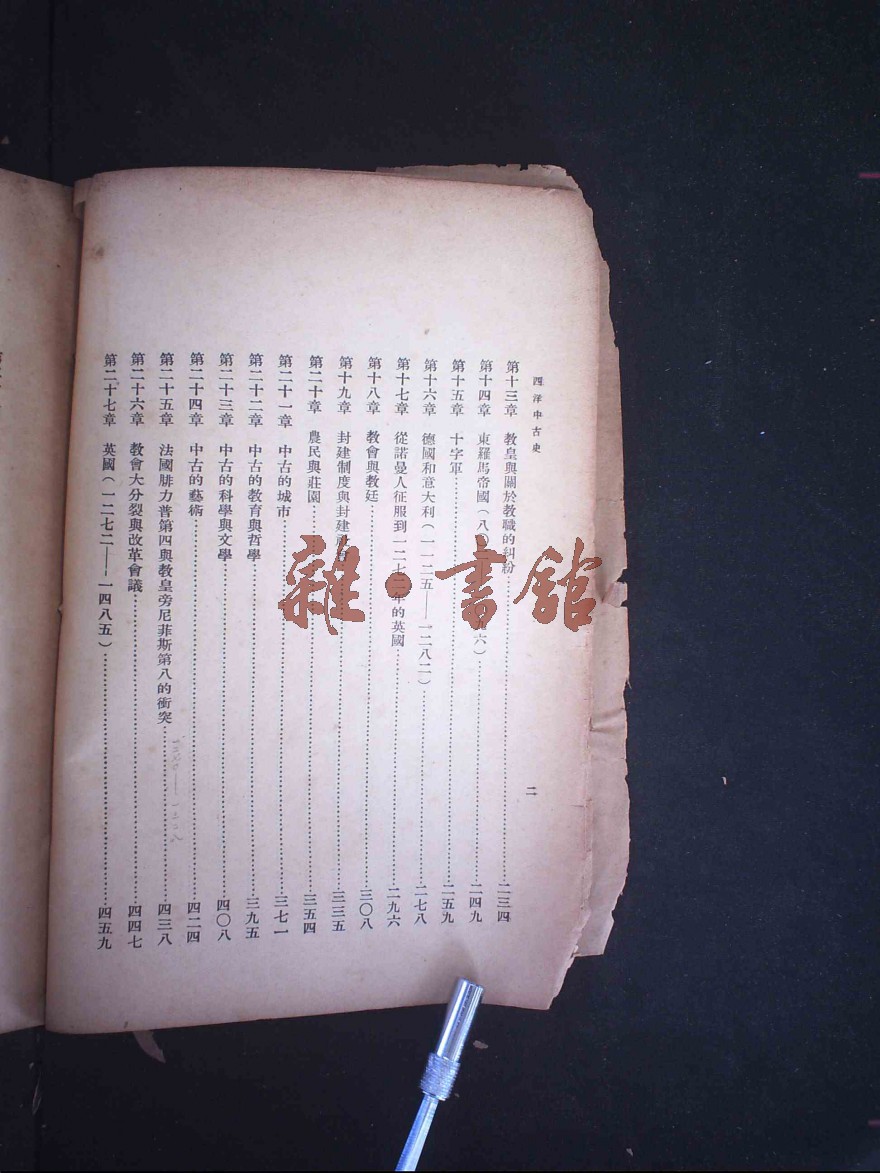 西洋中古史
二
第十三章 教皇與關於教職的糾紛……二三四
第十四章 東羅馬帝國(八〇 六)……二四九
第十五章 十字軍……二五九
第十六章 德國和意大利(一一二五——一二八二)……二七八
第十七章 從諾曼人征服到一二七二年的英國……二九六
第十八章 教會與教廷……三〇八
第十九章 封建制度與封建……三三五
第二十章 農民與莊園……三五四
第二十一章 中古的城市……三七一
第二十二章 中古的教育與哲學……三九五
第二十三章 中古的科學與文學……四〇八
第二十四章 中古的藝術……四二四
第二十五章 法國腓力普第四與教皇旁尼菲斯第八的衝突……四三八
第二十六章 教會大分裂與改革會議……四四七
第二十七章 英國(一二七二——一四八五)……四五九
雜·書館